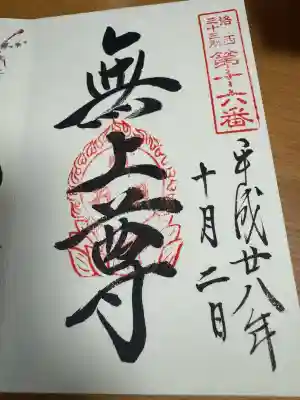 洛西
三十三所
第二十六番
平成廿八年
十月二日
無上尊